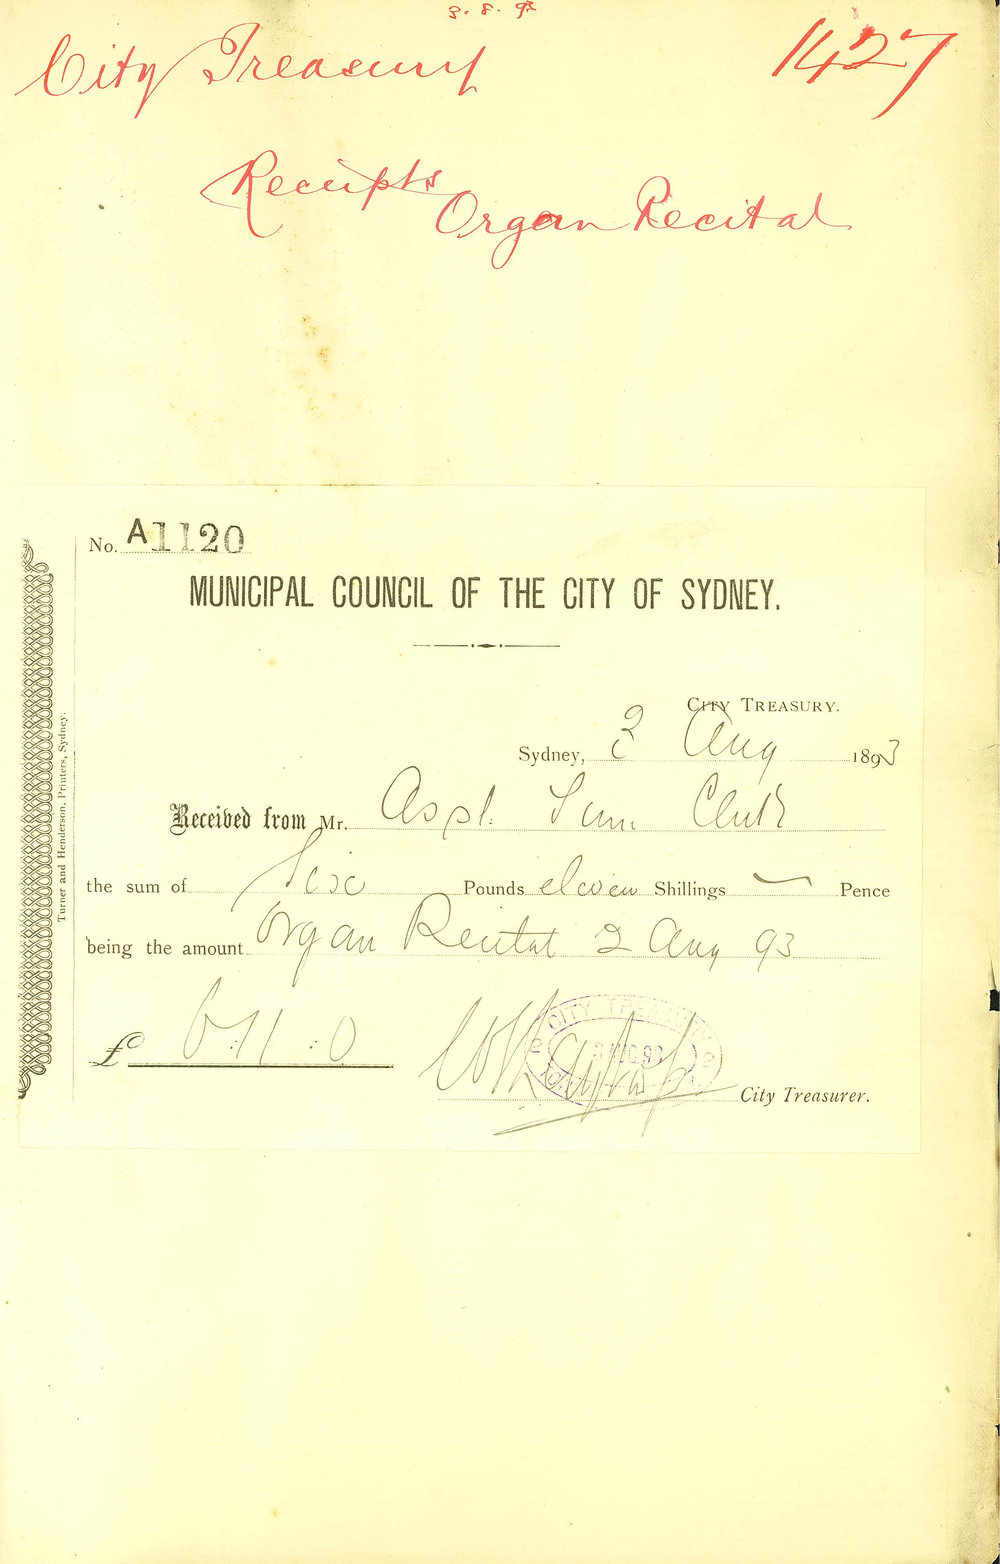 3. 8. 93
City Treasury 1427
Receipts
Organ Recital
No. A1120
MUNICIPAL COUNCIL OF THE CITY OF SYDNEY.
CITY TREASURY.
Sydney, 3 Aug 1893
Received from Mr. Asst. Town Clerk
the sum of Six Pounds eleven Shillings — Pence
being the amount Organ Recital 2 Aug 93
£ 6:11:0
CITY TREASURY
City Treasurer.
Turner and Henderson, Printers, Sydney.